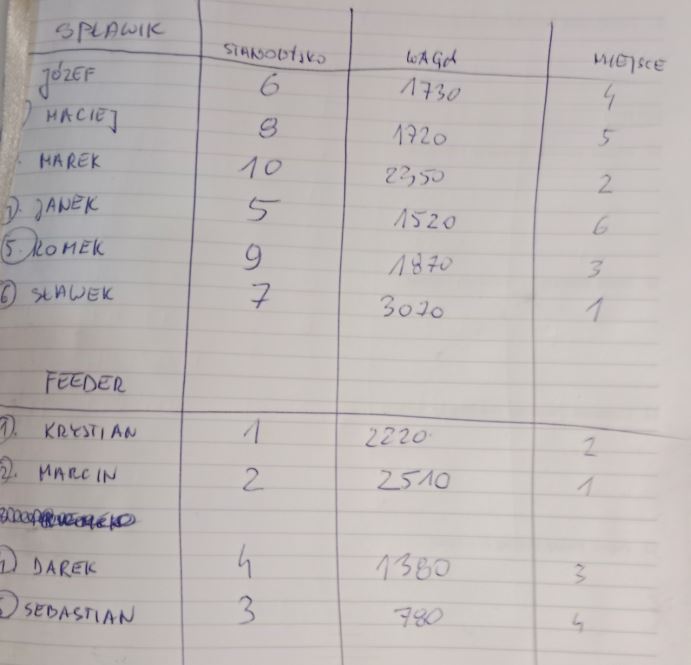 SPŁAWIK STANOWISKO WAGA MIEJSCE
JÓZEF 6 1730 4
MACIEJ 8 1720 5
MAREK 10 2350 2
JANEK 5 1520 6
5. ROMEK 9 1870 3
6 SŁAWEK 7 3070 1
FEEDER
1. KRYSTIAN 1 2220 2
2. MARCIN 2 2510 1
DAREK 4 1380 3
SEBASTIAN 3 780 4